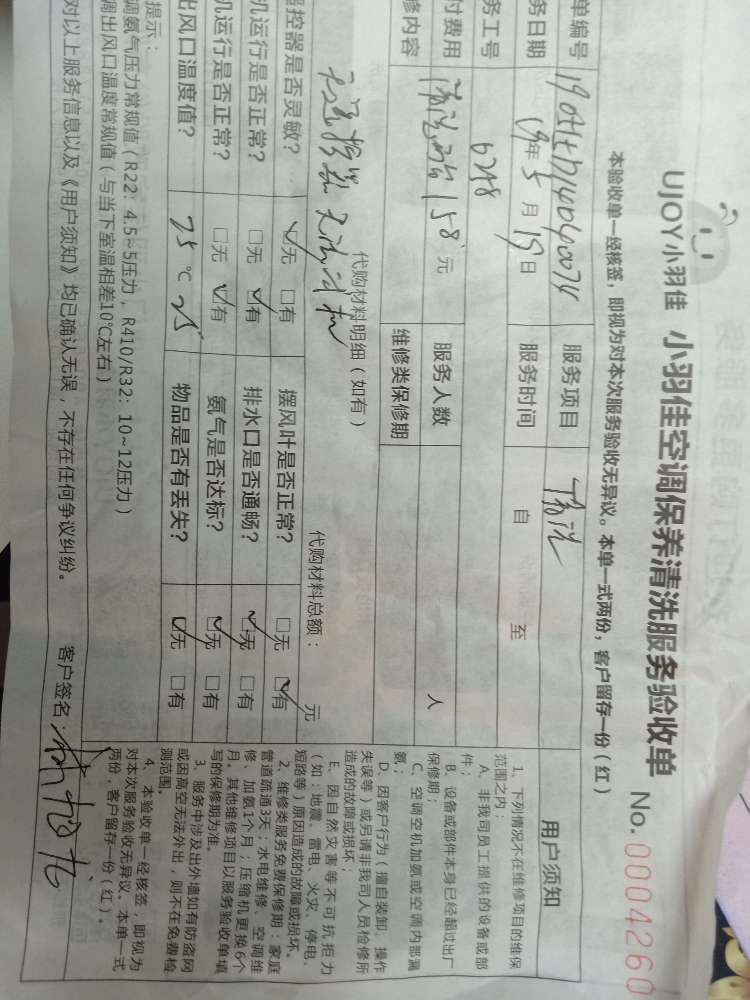 UJOY小羽佳 小羽佳空调保养清洗服务验收单
No. 0004260
本验收单一经核签，即视为对本次服务验收无异议。本单一式两份，客户留存一份（红）
单编号 服务项目 清洗
务日期 19年5月19日 服务时间 自 至
务工号 6248
付费用 清洗两台158元 服务人数 人
修内容 维修类保修期
代购材料明细（如有） 代购材料总额： 元
控器是否灵敏？ ☑无 □有 摆风叶是否正常？ □无 ☑有
机运行是否正常？ □无 ☑有 排水口是否通畅？ ☑无 □有
机运行是否正常？ □无 ☑有 氨气是否达标？ ☑无 □有
出风口温度值？ 25℃ 25 物品是否有丢失？ ☑无 □有
提示：
调氨气压力常规值（R22：4.5~5压力，R410/R32：10~12压力）
调出风口温度常规值（与当下室温相差10℃左右）
对以上服务信息以及《用户须知》均已确认无误，不存在任何争议纠纷。 客户签名：
用户须知
1、下列情况不在维修项目的维保
范围之内：
A、非我司员工提供的设备或部
件；
B、设备或部件本身已经超过出厂
保修期；
C、空调空机加氨或空调内部漏
氨；
D、因客户行为（擅自装卸、操作
失误等）或另请非我司人员检修所
造成的故障或损坏；
E、因自然灾害等不可抗拒力
（如：地震、雷电、火灾、停电、
短路等）原因造成的故障或损坏。
2、维修类服务免费保修期：家庭
管道疏通3天；水电维修、空调维
修、加氨1个月；压缩机更换6个
月。其他维修项目以服务验收单填
写的保修期为准。
3、服务中涉及出外墙如有防盗网
或因高空无法外出，则不在免费检
测范围。
4、本验收单一经核签，即视为
对本次服务验收无异议。本单一式
两份，客户留存一份（红）。